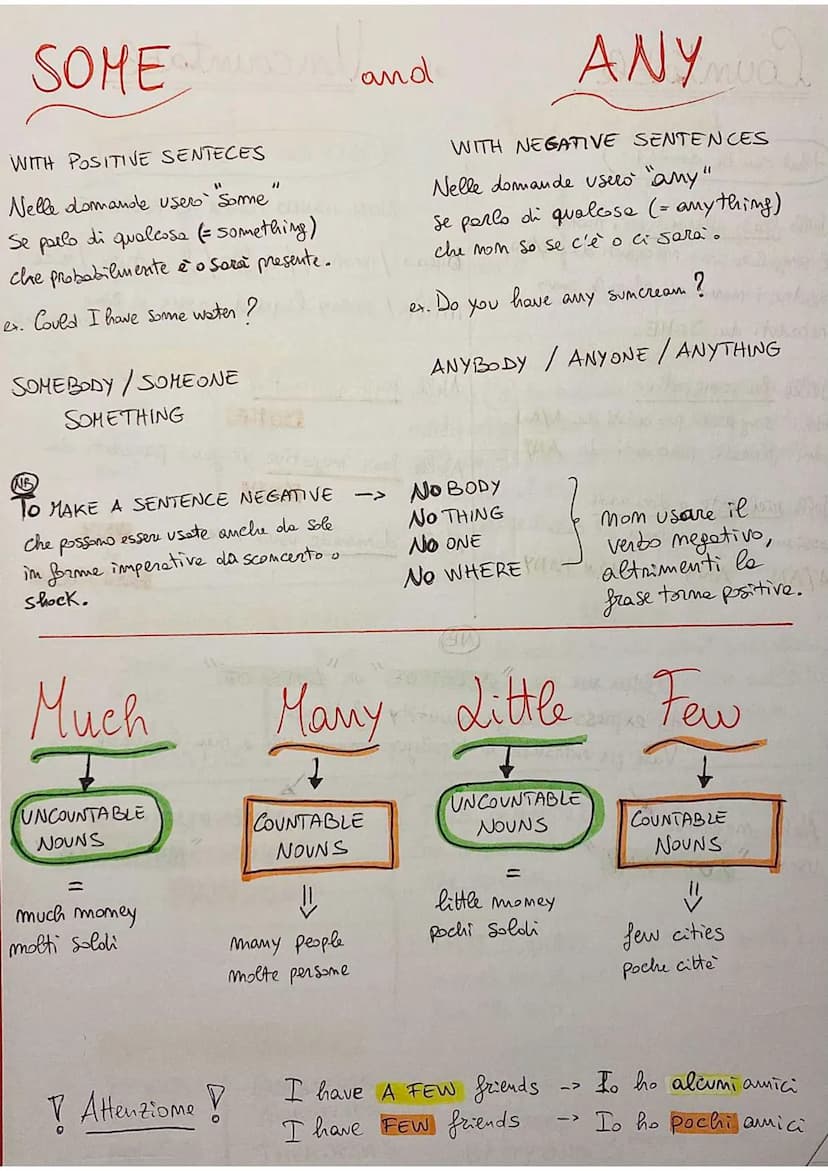 SOME and ANY
WITH POSITIVE SENTECES
Nelle domande userò "some"
se parlo di qualcosa (= something)
che probabilmente è o sarà presente.
es. Could I have some water?
SOMEBODY / SOMEONE
SOMETHING
WITH NEGATIVE SENTENCES
Nelle domande userò "any"
se parlo di qualcosa (= anything)
che non so se c'è o ci sarà.
es. Do you have any suncream?
ANYBODY / ANYONE / ANYTHING
NB
TO MAKE A SENTENCE NEGATIVE →
che possono essere usate anche da sole
in forme imperative da sconcerto o
shock.
NOBODY
NO THING
NO ONE
NO WHERE
non usare il
verbo negativo,
altrimenti la
frase torna positiva.
Much
UNCOUNTABLE
NOUNS
=
much money
molti soldi
Many
COUNTABLE
NOUNS
many people
molte persone
Little
UNCOUNTABLE
NOUNS
=
little money
pochi soldi
Few
COUNTABLE
NOUNS
few cities
poche città
! Attenzione !
I have A FEW friends → Io ho alcuni amici
I have FEW friends → Io ho pochi amici